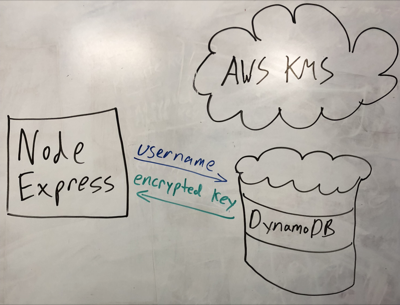 AWS KMS
Node
Express
username
encrypted key
DynamoDB